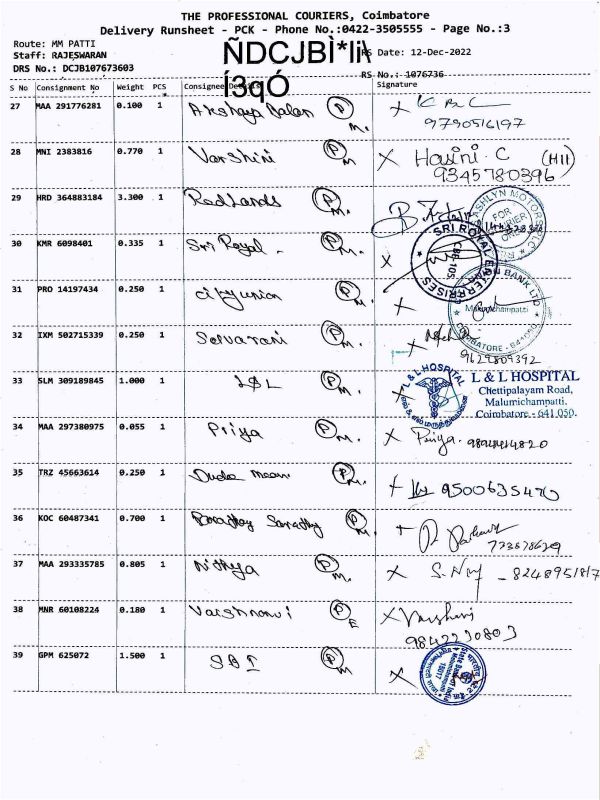 THE PROFESSIONAL COURIERS, Coimbatore
Delivery Runsheet - PCK - Phone No.:0422-3505555 - Page No.:3
Route: MM PATTI
Staff: RAJESWARAN
ÑDCJBÌ*lìì
RS Date: 12-Dec-2022
DRS No.: DCJB107673603
Í3qÓ
RS No.: 1076736
S No Consignment No Weight PCS Consignee Details Signature
27 MAA 291776281 0.100 1 Akshaya Balan P M. X
9790516197
28 MNI 2383816 0.770 1 Varshini P M X Hasini. C (MIL)
9345780396
29 HRD 364883184 3.300 1 Redlands P M.
FOR
30 KMR 6098401 0.335 1 Sri Royal P M. X
SRI ROYAL ENTERPRISES
31 PRO 14197434 0.250 1 city union P M. X
BANK LTD
Malumichampatti
COIMBATORE - 641 050
32 IXM 502715339 0.250 1 Selvarani P M. X
9629809392
33 SLM 309189845 1.000 1 L&L P M. X
L & L HOSPITAL
L & L HOSPITAL
Chettipalayam Road,
Malumichampatti.
Coimbatore - 641 050.
34 MAA 297380975 0.055 1 Priya P M. X Priya.
35 TRZ 45663614 0.250 1 P M. 9500635470
36 KOC 60487341 0.700 1 P M.
37 MAA 293335785 0.805 1 Nithya P M. X
38 MNR 60108224 0.180 1 Vaishnavi P E X
9842230803
39 GPM 625072 1.500 1 SBI P M X